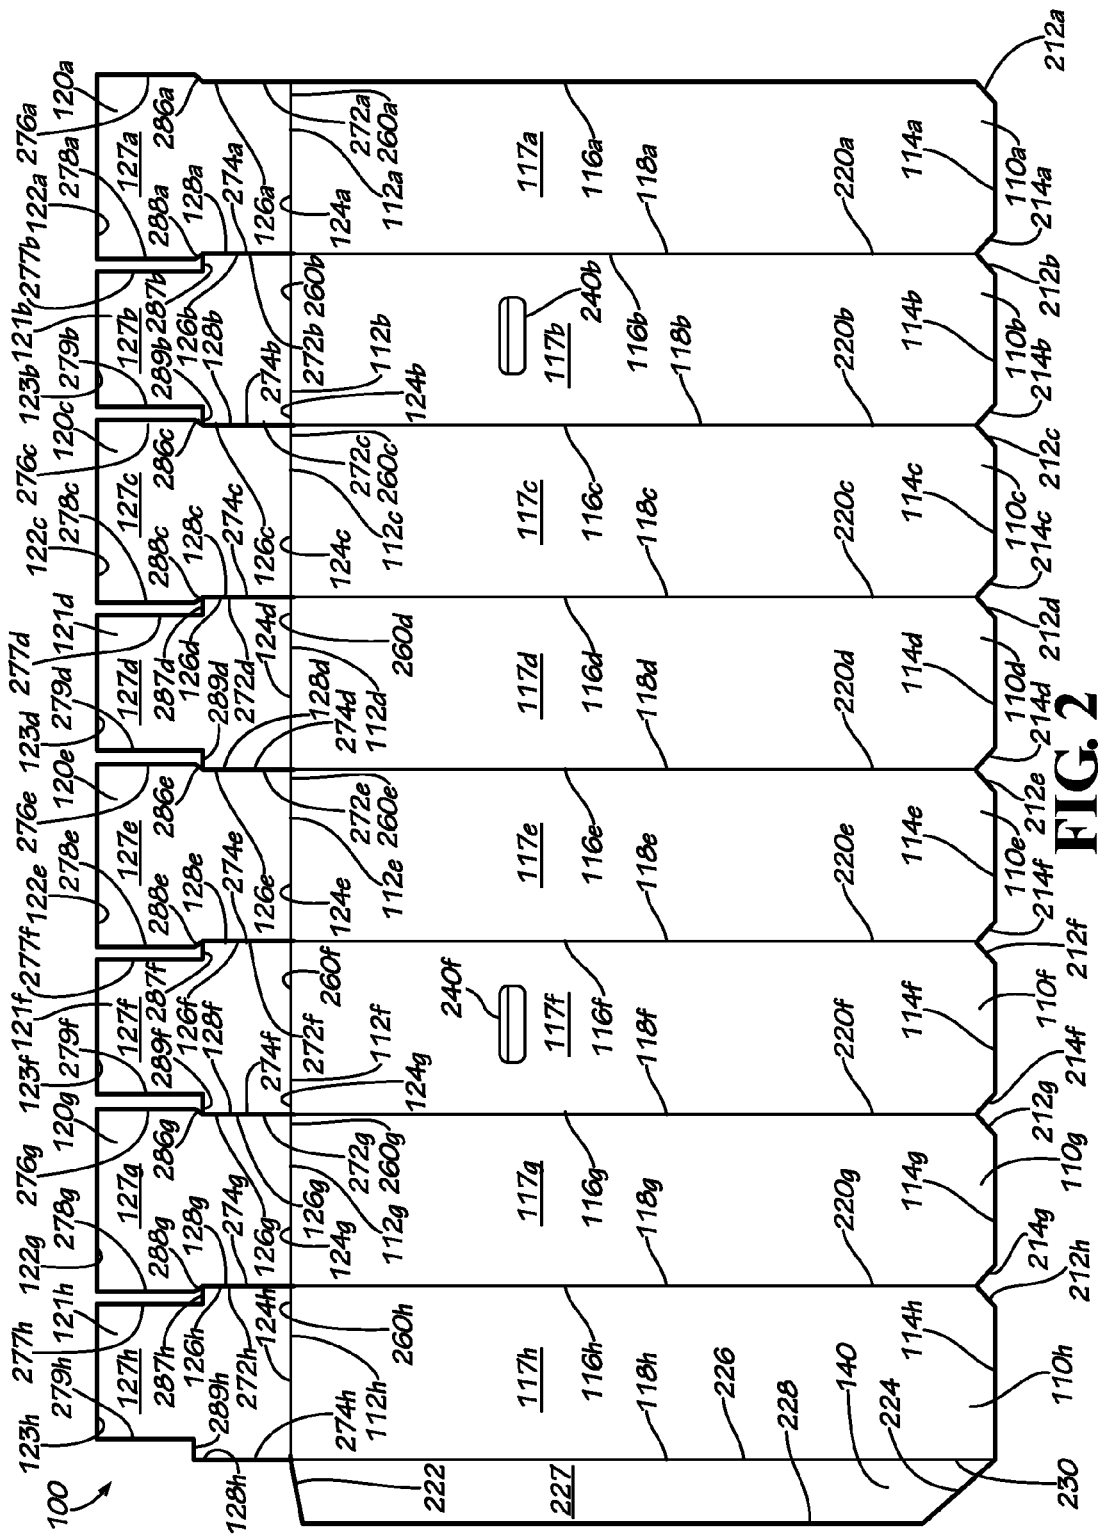 100
123h
279h
277h
121h
127h
287h
126h
289h
272h
124h
128h
274h
112h
260h
222
227
117h
116h
118h
226
228
140
224
220g
114h
110h
230
212h
122g
278g
276g
120g
127g
288g
286g
128g
274g
126g
126g
124g
272g
260g
112g
117g
116g
118g
114g
110g
214g
212g
123f
279f
121f
277f
127f
289f
287f
126f
128f
274f
272f
260f
112f
124g
240f
117f
116f
118f
220f
114f
110f
214f
212f
122e
278e
276e
120e
127e
288e
286e
128e
274e
126e
124e
272e
260e
112e
117e
116e
118e
220e
114e
110e
214f
212e
123d
279d
277d
121d
127d
287d
126d
289d
272d
124d
128d
274d
112d
260d
117d
116d
118d
220d
114d
110d
214d
212d
122c
278c
276c
120c
127c
288c
286c
128c
274c
126c
124c
272c
260c
112c
117c
116c
118c
220c
114c
110c
214c
212c
123b
279b
121b
277b
127b
289b
287b
126b
128b
274b
272b
260b
112b
124b
240b
117b
116b
118b
220b
114b
110b
214b
212b
122a
278a
276a
120a
127a
288a
286a
128a
274a
126a
124a
272a
260a
112a
117a
116a
118a
220a
114a
110a
214a
212a
FIG. 2